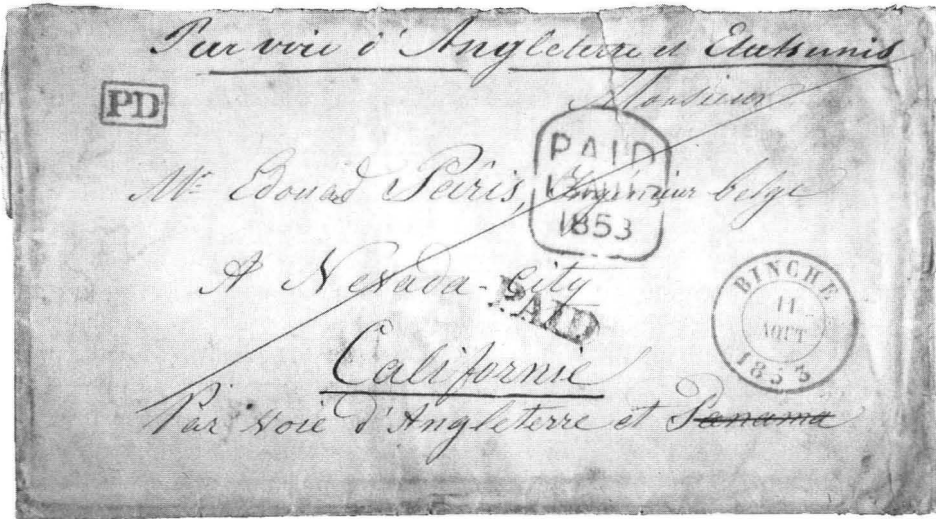 Par voie d'Angleterre et Etatsunis
Monsieur
PD
PAID
1853
Mr Edouard Pâris, Ingénieur belge
A Nevada-City
PAID
BINCHE
11
AOUT
1853
Californie
Par voie d'Angleterre et Panama